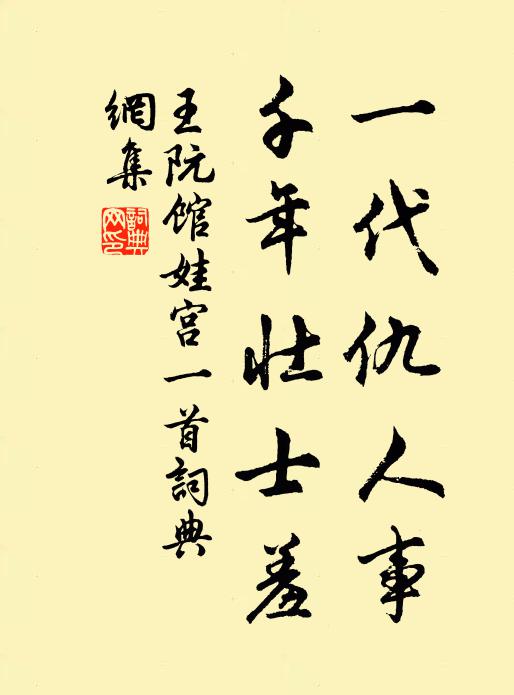 一代仇人事
千年壮士羞
王阮馆娃宫一首詞典
網集
詞典網印